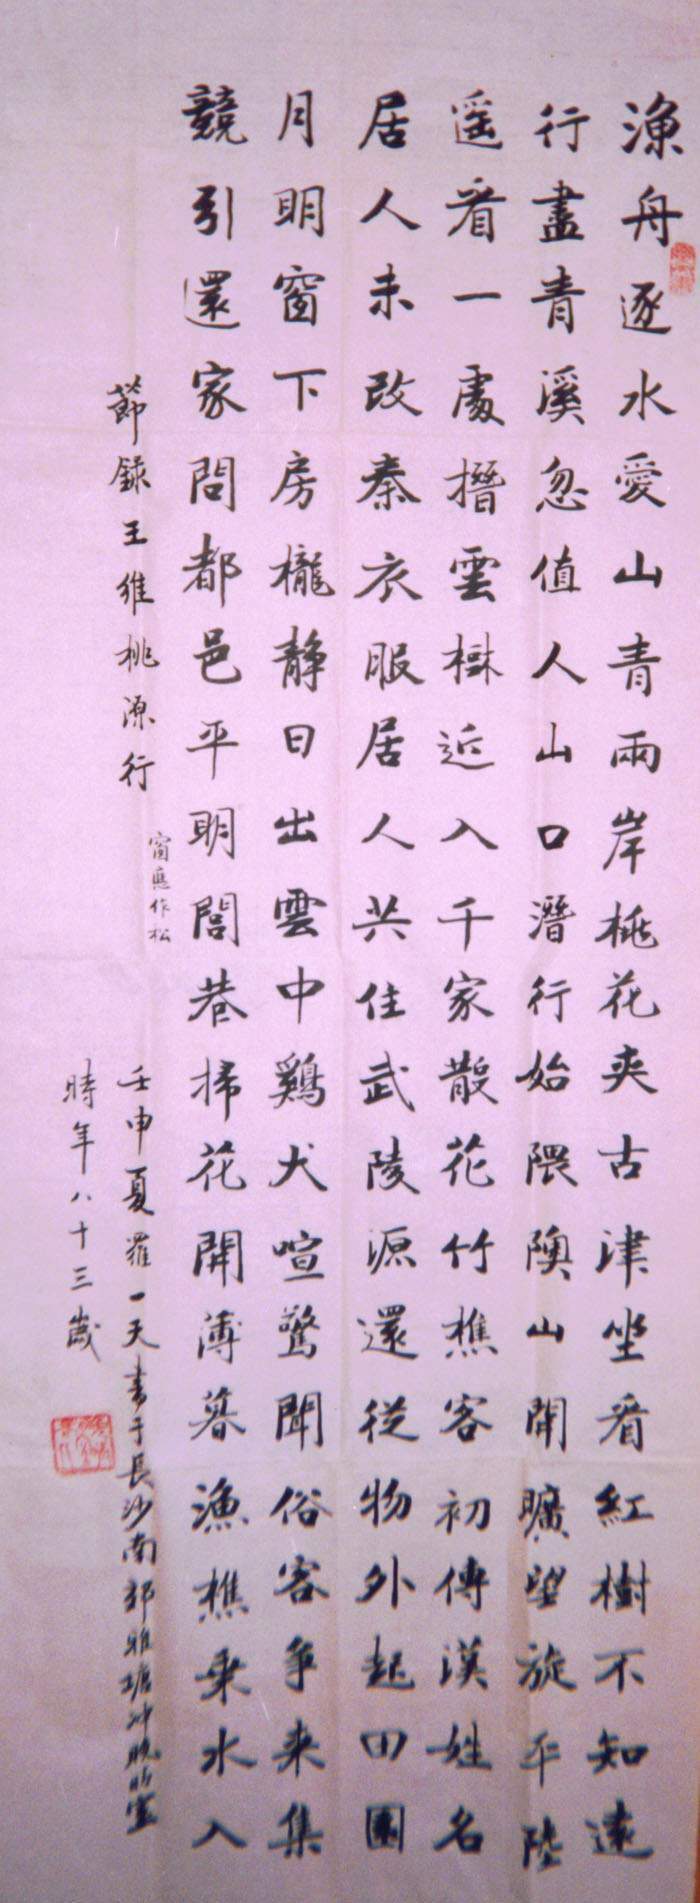 漁舟逐水愛山青兩岸桃花夾古津坐看紅樹不知遠
行盡青溪忽值人山口潛行始隈隩山開曠望旋平陸
遥看一處攢雲樹近入千家散花竹樵客初傳漢姓名
居人未改秦衣服居人共住武陵源還從物外起田園
月明窗下房櫳静日出雲中鷄犬喧驚聞俗客爭来集
競引還家問都邑平明閭巷掃花開薄暮漁樵乘水入
節録王維桃源行
窗應作松
壬申夏羅一天書于長沙南郊雅塘冲晚晴室
時年八十三歲